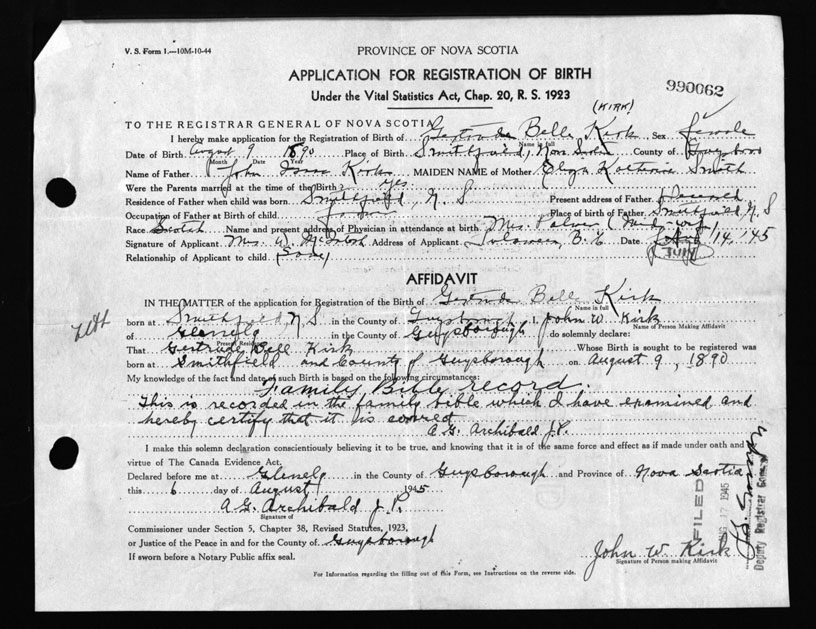 V. S. Form 1.—10M-10-44
PROVINCE OF NOVA SCOTIA
APPLICATION FOR REGISTRATION OF BIRTH
Under the Vital Statistics Act, Chap. 20, R. S. 1923
990062
(KIRK)
TO THE REGISTRAR GENERAL OF NOVA SCOTIA
I hereby make application for the Registration of Birth of Gertrude Belle Kirk, Sex female
Name in full
Date of Birth August 9 1890 Place of Birth Smithfield, Nova Scotia County of Guysboro
Month Date Year
Name of Father John Kirk MAIDEN NAME of Mother Eliza Katherine Smith
Were the Parents married at the time of the Birth? yes.
Residence of Father when child was born Smithfield, N S Present address of Father Deceased
Occupation of Father at Birth of child farmer Place of birth of Father Smithfield N S
Race Scotch Name and present address of Physician in attendance at birth Mrs. Palmer (Midwife)
Signature of Applicant Mrs. W. McIntosh Address of Applicant B. C. Date July 14, '45
Relationship of Applicant to child (Same) JULY
AFFIDAVIT
IN THE MATTER of the application for Registration of the Birth of Gertrude Belle Kirk
Name in full
born at Smithfield N S in the County of Guysborough I, John W Kirk
Name of Person Making Affidavit
of Glenelg in the County of Guysborough do solemnly declare:
Present Residence
That Gertrude Bell Kirk Whose Birth is sought to be registered was
born at Smithfield and County of Guysborough on August 9, 1890
My knowledge of the fact and date of such Birth is based on the following circumstances:
Family Bible record.
This is recorded in the family bible which I have examined and
hereby certify that it is correct
A G. Archibald J.P.
I make this solemn declaration conscientiously believing it to be true, and knowing that it is of the same force and effect as if made under oath and by
virtue of The Canada Evidence Act.
Declared before me at Glenelg in the County of Guysborough and Province of Nova Scotia
this 6 day of August 1945
A G. Archibald J. P.
Signature of
Commissioner under Section 5, Chapter 38, Revised Statutes, 1923,
or Justice of the Peace in and for the County of Guysborough
If sworn before a Notary Public affix seal.
John W Kirk
Signature of Person making Affidavit
For Information regarding the filling out of this Form, see Instructions on the reverse side.
FILED
17 1945
Deputy Registrar General